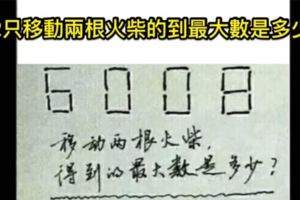 只移動兩根火柴的到最大數是多少
6008
移动两根火柴,
得到的最大数是多少?